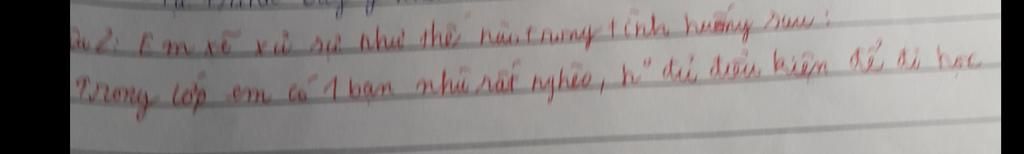 Câu 2: Em xẽ xử sự như thế nào trong tình huống sau:
Trong lớp em có 1 bạn nhà rất nghèo, k° đủ điều kiện để đi học